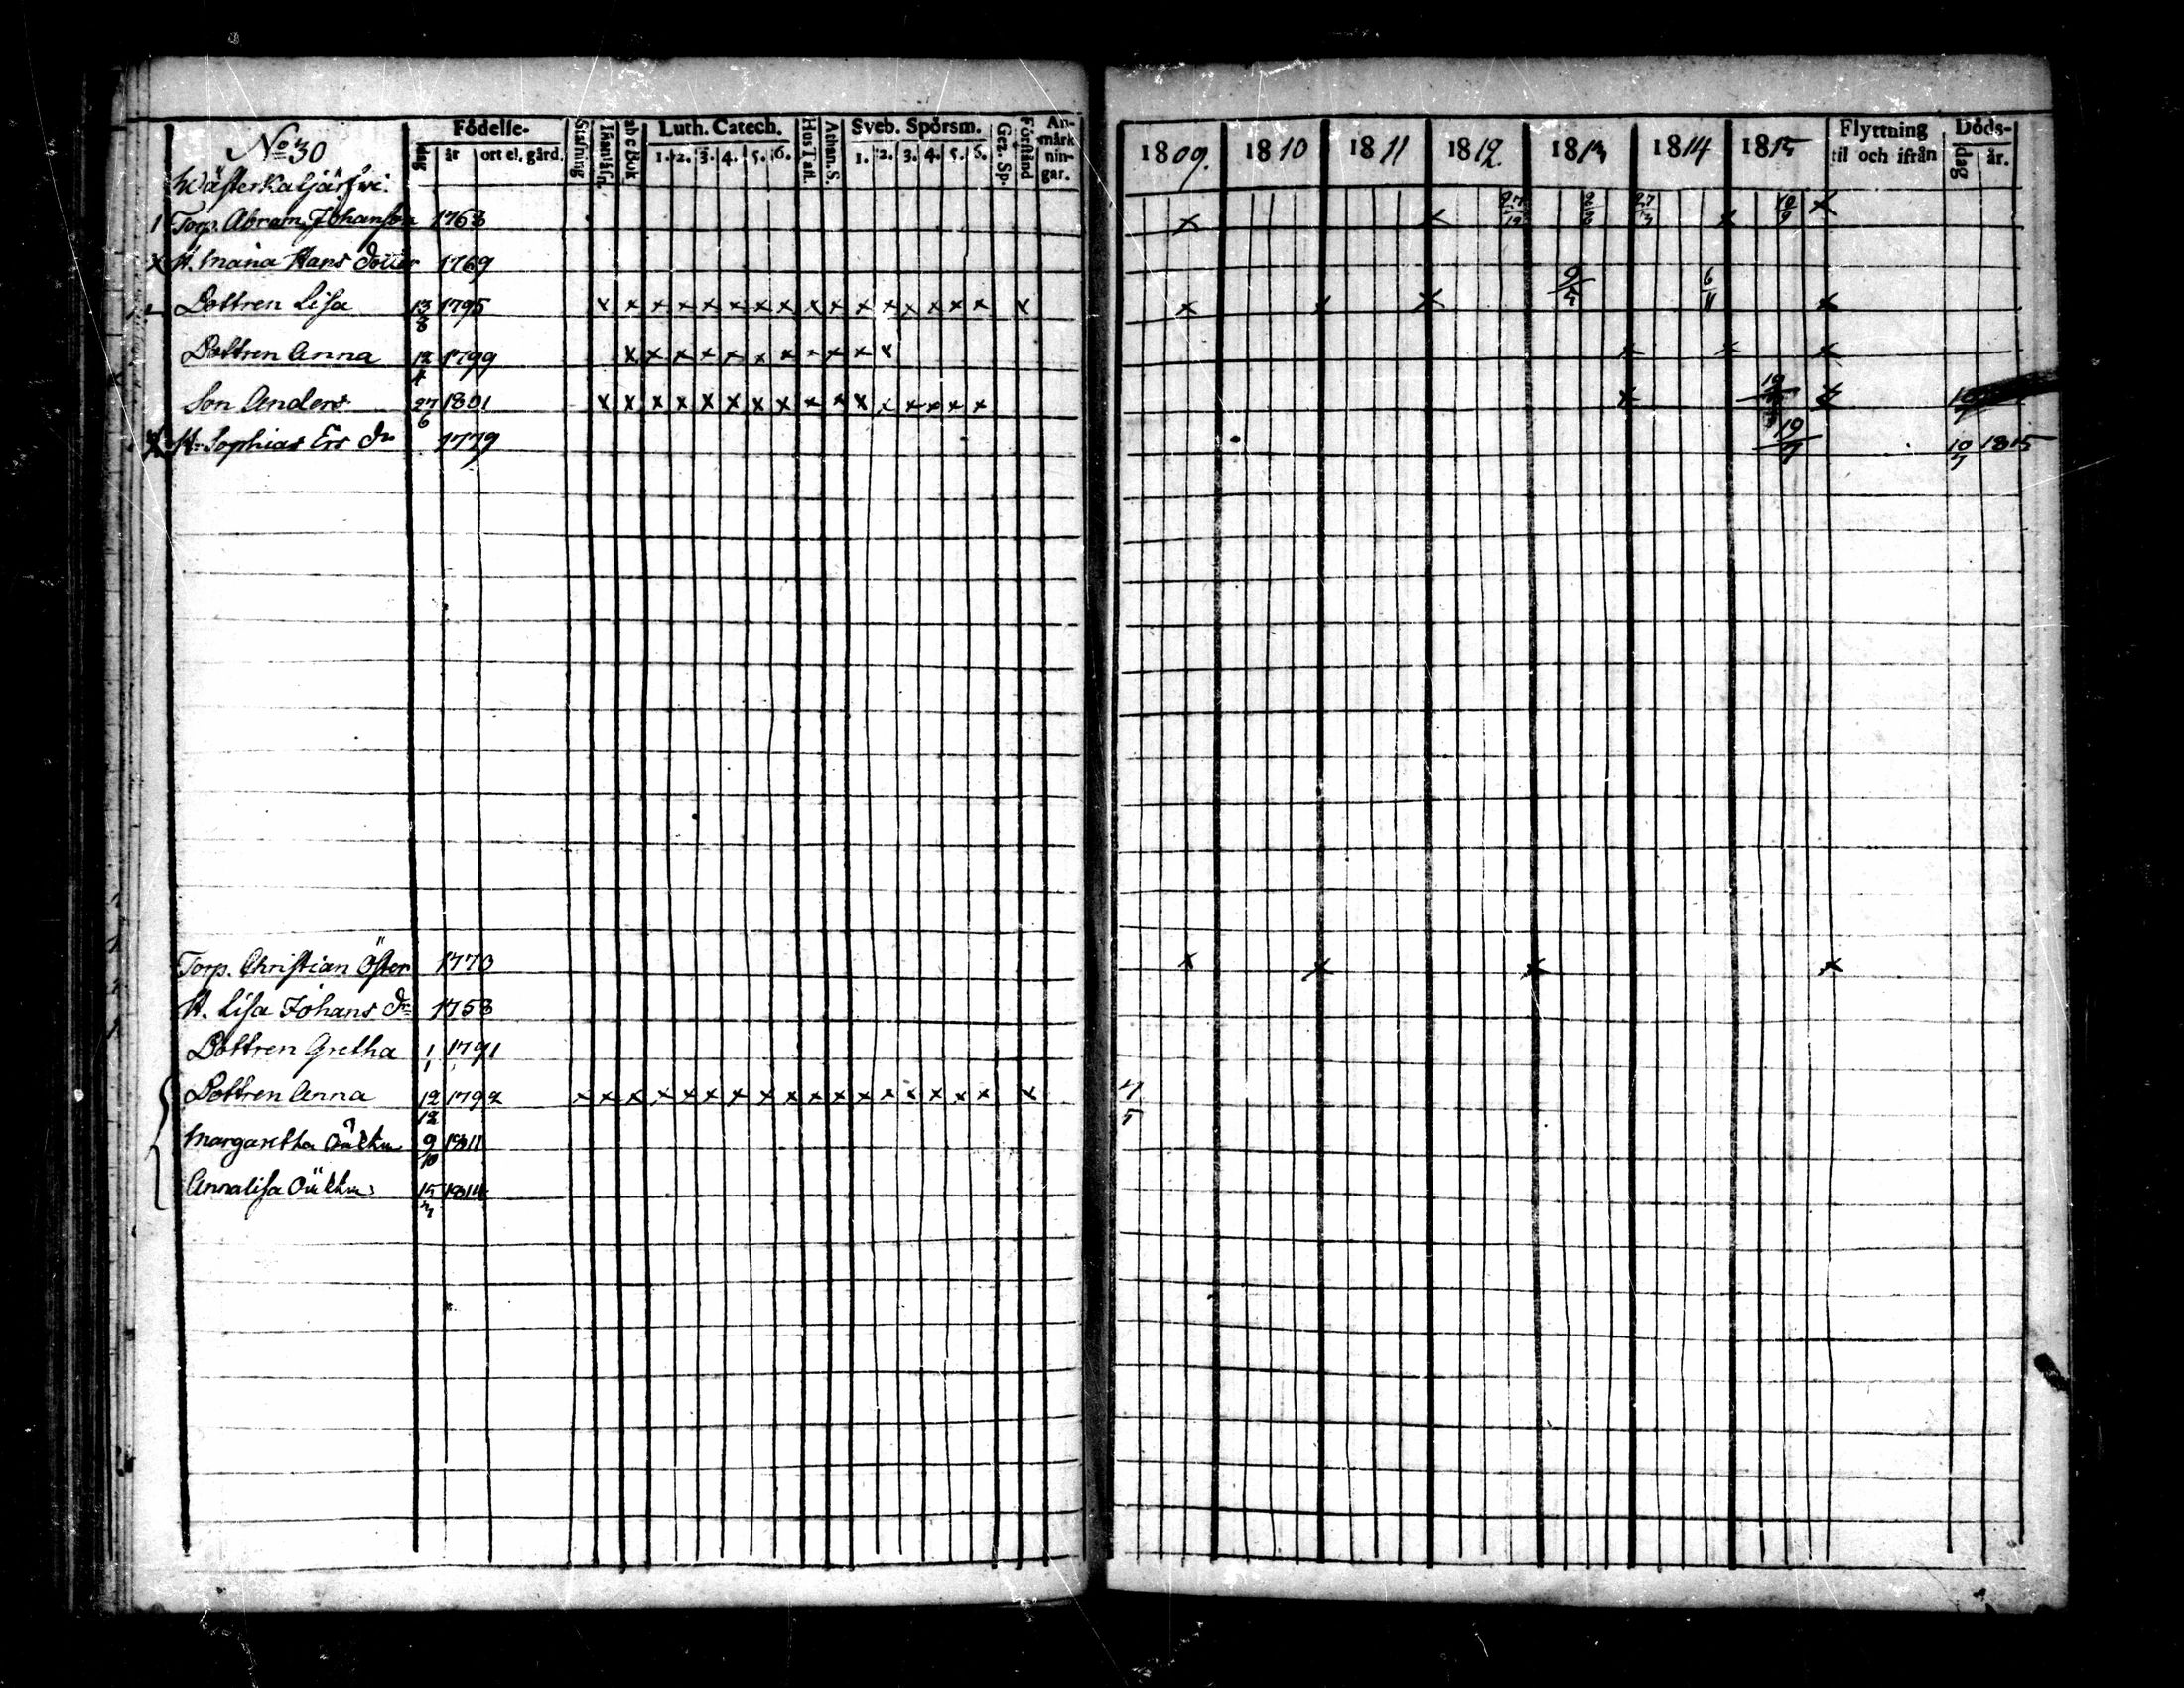 No 30
Födelse-
dag år ort el. gård.
Stafning
Inanläsn.
abc Bok
Luth. Catech.
1. 2. 3. 4. 5. 6.
Hus Tafl.
Athan. S.
Sveb. Spörsm.
1. 2. 3. 4. 5. 6.
Gez. Sp.
Förstånd
An-
märk
nin-
gar.
1809. 1810 1811 1812 1813 1814 1815
Flyttning
til och ifrån
Döds-
dag år.
1 Torp. Abram Johansson 1768 x x 27/12 2/8 27/3 x 10/9 x
x H. Maria Hans dotter 1769
2 Dottren Lisa 13/8 1795 x x x x x x x x x x x x x x x x x x x x 6/11 x
Dottren Anna 12/4 1799 x x x x x x x x x x x x x x
Son Anders 27/6 1801 x x x x x x x x x x x x x x x x x x
H. Sophia Ers dr 1779 19/7 10/7 1815
Torp. Christian Öster 1770 x x x x
H. Lisa Johans dr 1758
Dottren Gretha 1/1 1791
Dottren Anna 12/12 1792 x x x x x x x x x x x x x x x x x x 4/5
Margaretha 9/10 1811
Annalisa 15/3 1814